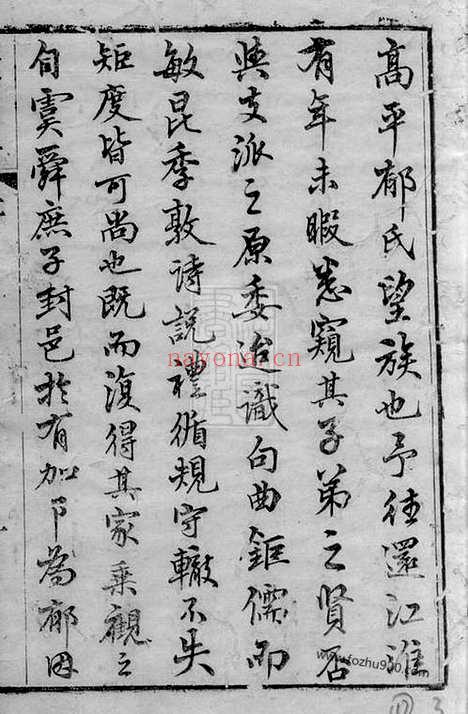 高平郁氏望族也予往還江淮
有年未暇悉窺其子弟之賢否
與支派之原委迨識句曲鉅儒而
敏昆季敦詩說禮循規守轍不失
矩度皆可尚也既而復得其家乘觀之
自虞舜庶子封邑於有加卩為郁因
nayona.cn
www.fozhu900.com